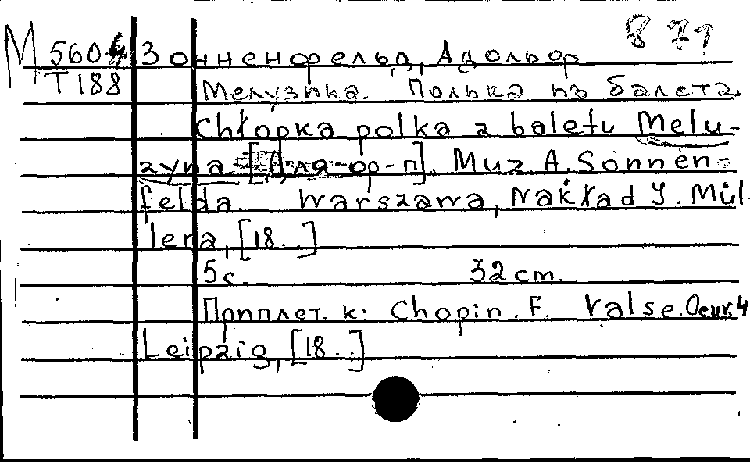 М 5604 Зонненфельд, Адольф 871
Т 188 Мелузина. Полька из балета.
Chłopka polka z baletu Melu-
zyna [Для ф-п]. Muz A. Sonnen-
felda. Warszawa, Nakład J. Mül
lera, [18..]
5 с. 32 cm.
Припллет. к: Chopin. F. Valse. Oeuv. 4
Leipzig, [18..]